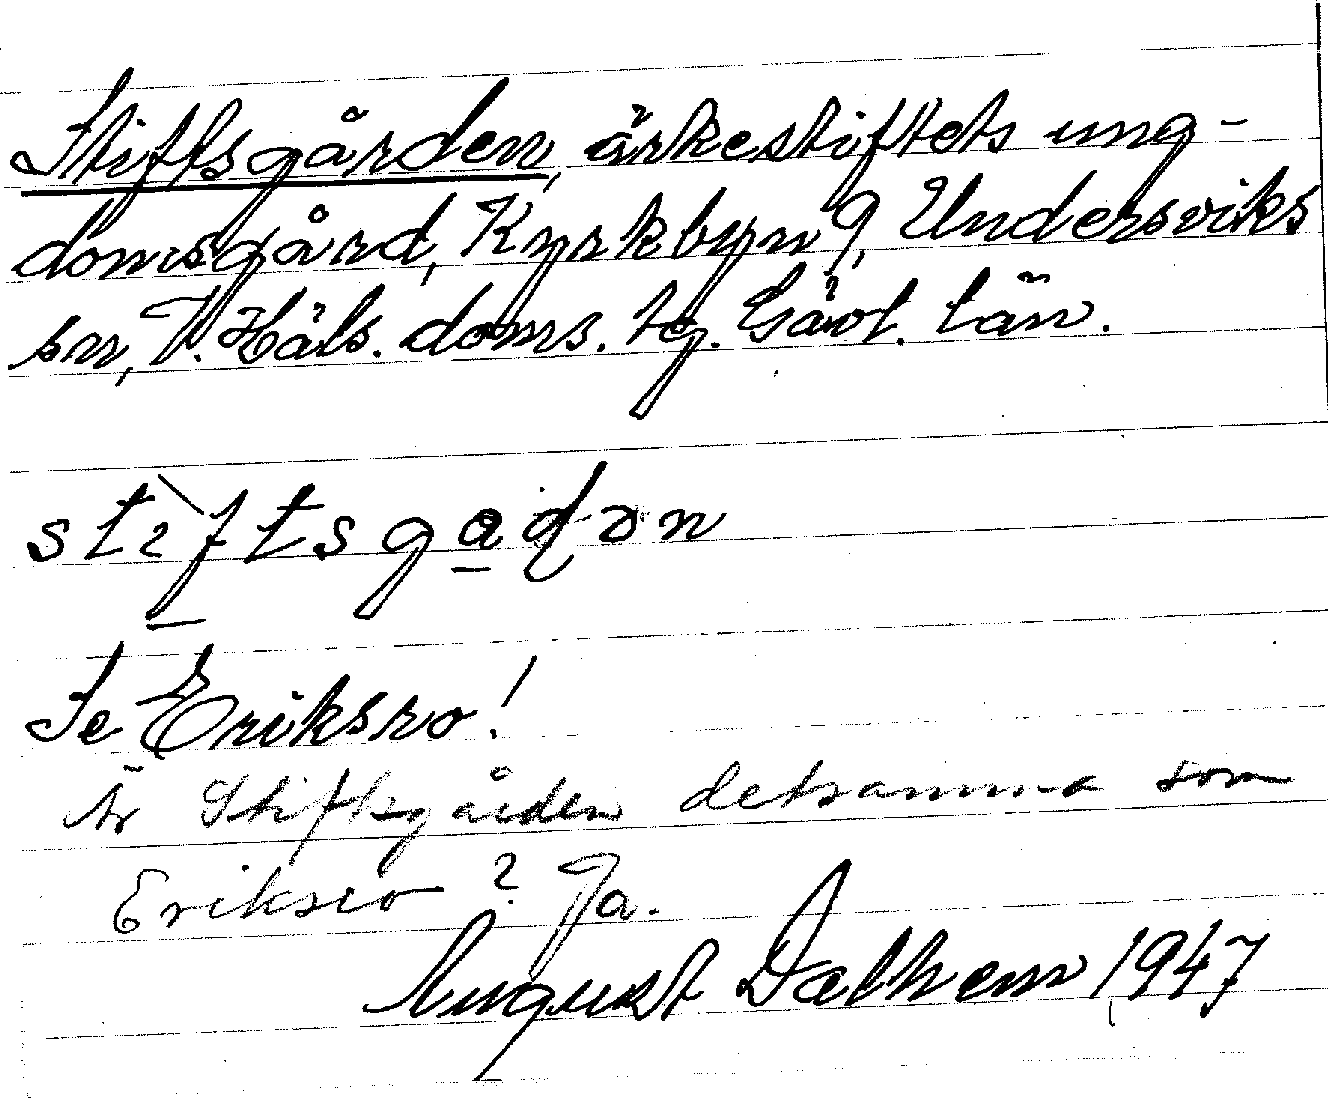 Stiftsgården, ärkestiftets ung-
domsgård, Kyrkbyn 9, Undersviks
sn, V. Häls. doms. tg. Gävl. län.
stiftsgaɖən
Se Eriksro!
Är Stiftsgården detsamma som
Eriksro? Ja.
August Dalhem 1947